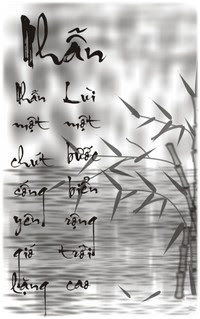 Nhẫn
Nhẫn một chút sóng yên gió lặng
Lùi một bước biển rộng trời cao